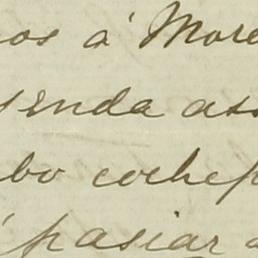 os á More
senda as
bo coche
pasiar a